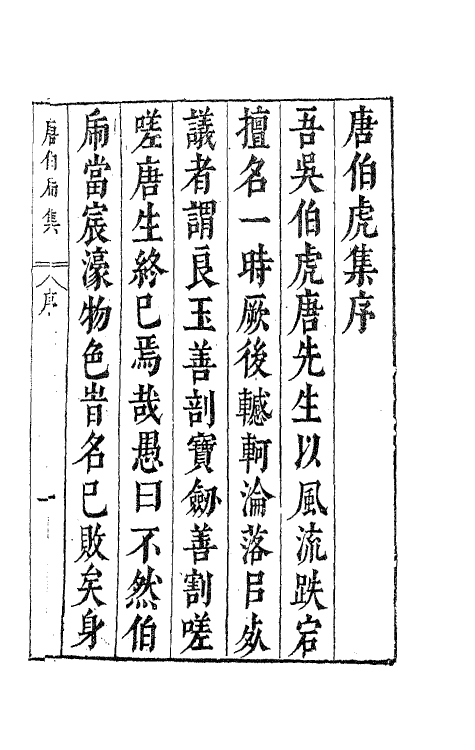 唐伯虎集序
吾吳伯虎唐先生以風流跌宕
擅名一時厥後轗軻淪落㠯
議者謂良玉善剖寶劒善割嗟
嗟唐生終已焉哉愚曰不然伯
當宸濠物色旹名已敗矣身
唐伯集
序
一